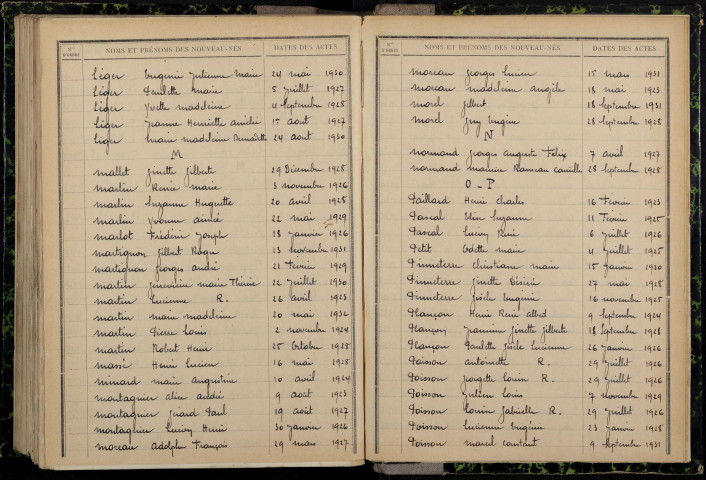 NOMS ET PRÉNOMS DES NOUVEAU-NÉS DATES DES ACTES
Léger Eugénie Julienne Marie 24 mai 1930
Léger Paulette Marie 5 juillet 1927
Léger Yvette Madeleine 4 septembre 1925
Léger Jeanne Henriette Amélie 15 août 1927
Léger Marie Madeleine Bernadette 24 août 1930
M
Mallet Ginette Gilberte 29 Décembre 1928
Martin Renée Marie 3 novembre 1926
Martin Suzanne Huguette 20 avril 1928
Martin Yvonne Aimée 22 mai 1929
Marlot Frédéric Joseph 18 janvier 1926
Martignon Gilbert Roger 23 novembre 1931
Martignon Georges André 21 février 1929
Martin Geneviève Marie Thérèse 22 juillet 1930
Martin Lucienne R. 26 avril 1923
Martin Marie Madeleine 20 mai 1936
Martin Pierre Louis 2 novembre 1924
Martin Robert Henri 25 octobre 1928
Massé Henri Lucien 16 mai 1928
Minard Marie Augustine 10 avril 1924
Montagnier Alice André 9 août 1923
Montagnier Gérard Paul 19 août 1927
Montagnier Lucien Henri 30 janvier 1926
Moreau Adolphe François 29 mars 1927
NOMS ET PRÉNOMS DES NOUVEAU-NÉS DATES DES ACTES
Moreau Georges Lucien 15 mars 1931
Moreau Madeleine Angèle 18 mai 1923
Morel Gilbert 18 septembre 1931
Morel Guy Eugène 28 septembre 1928
N
Normand Georges Auguste Félix 7 avril 1927
Normand Maurice Rameau Camille 28 septembre 1928
O - P
Paillard Henri Charles 16 février 1923
Pascal Elise Suzanne 11 février 1925
Pascal Lucien René 6 juillet 1926
Petit Odette Marie 4 juillet 1925
Pinneterre Christiane Marie 15 janvier 1930
Pinneterre Ginette Désirée 27 mai 1928
Pinneterre Gisèle Eugénie 16 novembre 1925
Plançon Henri René Alfred 9 septembre 1924
Plançon Jeannine Ginette Gilberte 18 septembre 1928
Plançon Paulette Gisèle Lucienne 26 janvier 1926
Poisson Antoinette R. 29 juillet 1926
Poisson Georgette Louise R. 29 juillet 1926
Poisson Julien Louis 7 novembre 1929
Poisson Louise Gabrielle R. 29 juillet 1926
Poisson Lucienne Eugénie 23 janvier 1928
Poisson Marcel Constant 9 septembre 1931